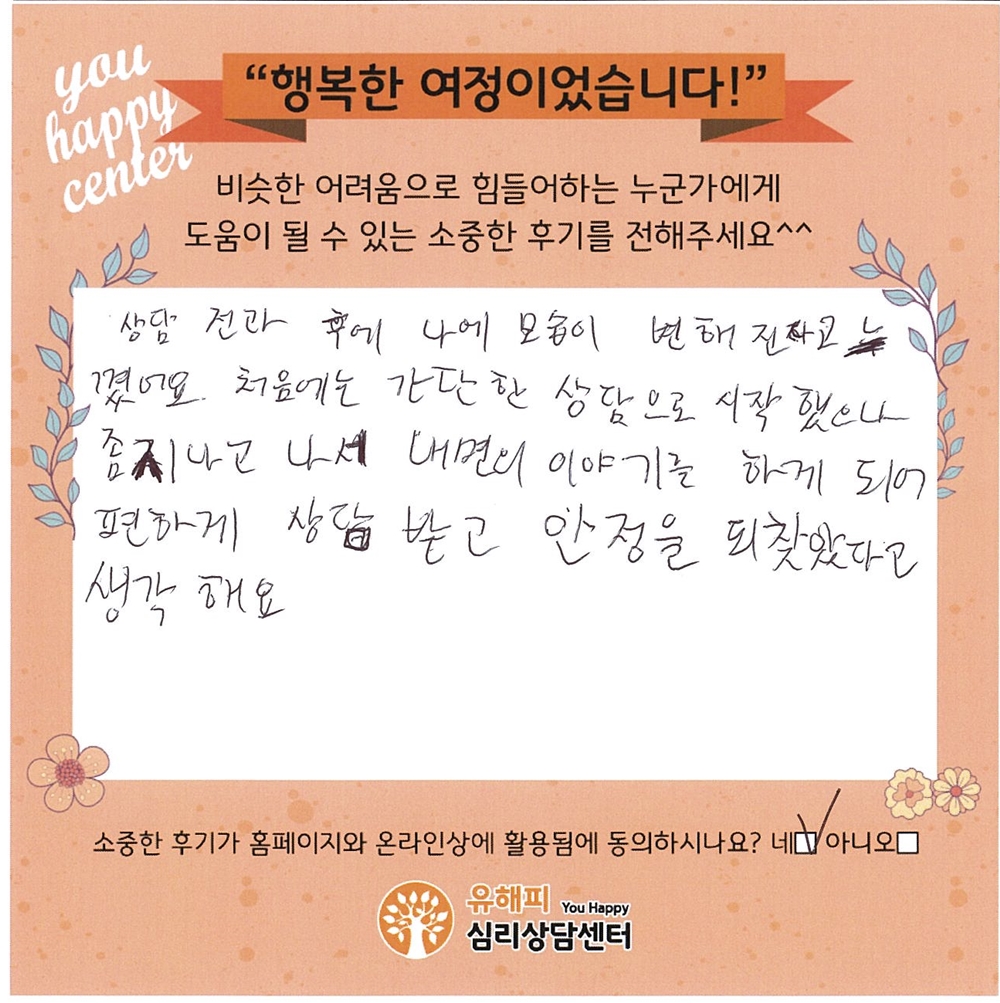 you
happy
center
“행복한 여정이었습니다!”
비슷한 어려움으로 힘들어하는 누군가에게
도움이 될 수 있는 소중한 후기를 전해주세요^^
상담 전과 후에 나에 모습이 변해 진다고 느
꼈어요. 처음에는 간단한 상담으로 시작 했으나
좀 지나고 나서 내면의 이야기를 하게 되어
편하게 상담 받고 안정을 되찾았다고
생각 해요
소중한 후기가 홈페이지와 온라인상에 활용됨에 동의하시나요? 네 아니오
유해피 You Happy
심리상담센터